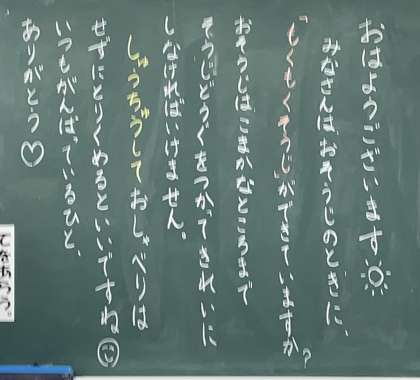 おはようございます
みなさんは、おそうじのときに、
「もくもくそうじ」ができていますか?
おそうじは、こまかなところまで
そうじどうぐをつかってきれいに
しなければいけません。
しゅうちゅうしておしゃべりは
せずにとりくめるといいですね
いつもがんばっているひと、
ありがとう♡
てをあらう。